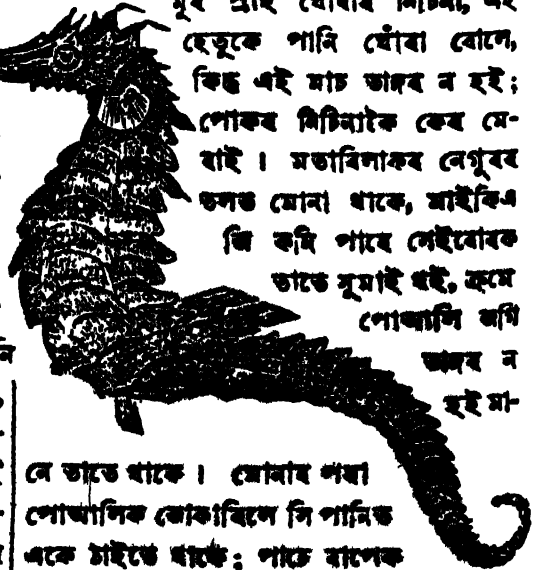 মূৰ প্ৰাই ঘোঁৰাৰ নিচিনা, এই
হেতুকে পানি ঘোঁৰা বোলে,
কিন্তু এই মাচ ডাঙ্গৰ ন হই;
পোকৰ নিচিনাকৈ কেৰ মে-
ৰাই । মতাবিলাকৰ নেগুৰৰ
তলত মোনা থাকে, মাইকিএ
জি কনি পাৰে সেইবোৰক
তাতে সুমাই থই, ক্ৰমে
পোআলি জগি
ডাঙ্গৰ ন
হই মা-
নে তাতে থাকে । মোনাৰ পৰা
পোআলিক জোকাৰিলে সি পানিত
একে ঠাইতে থাকে; পাচে বাপেক